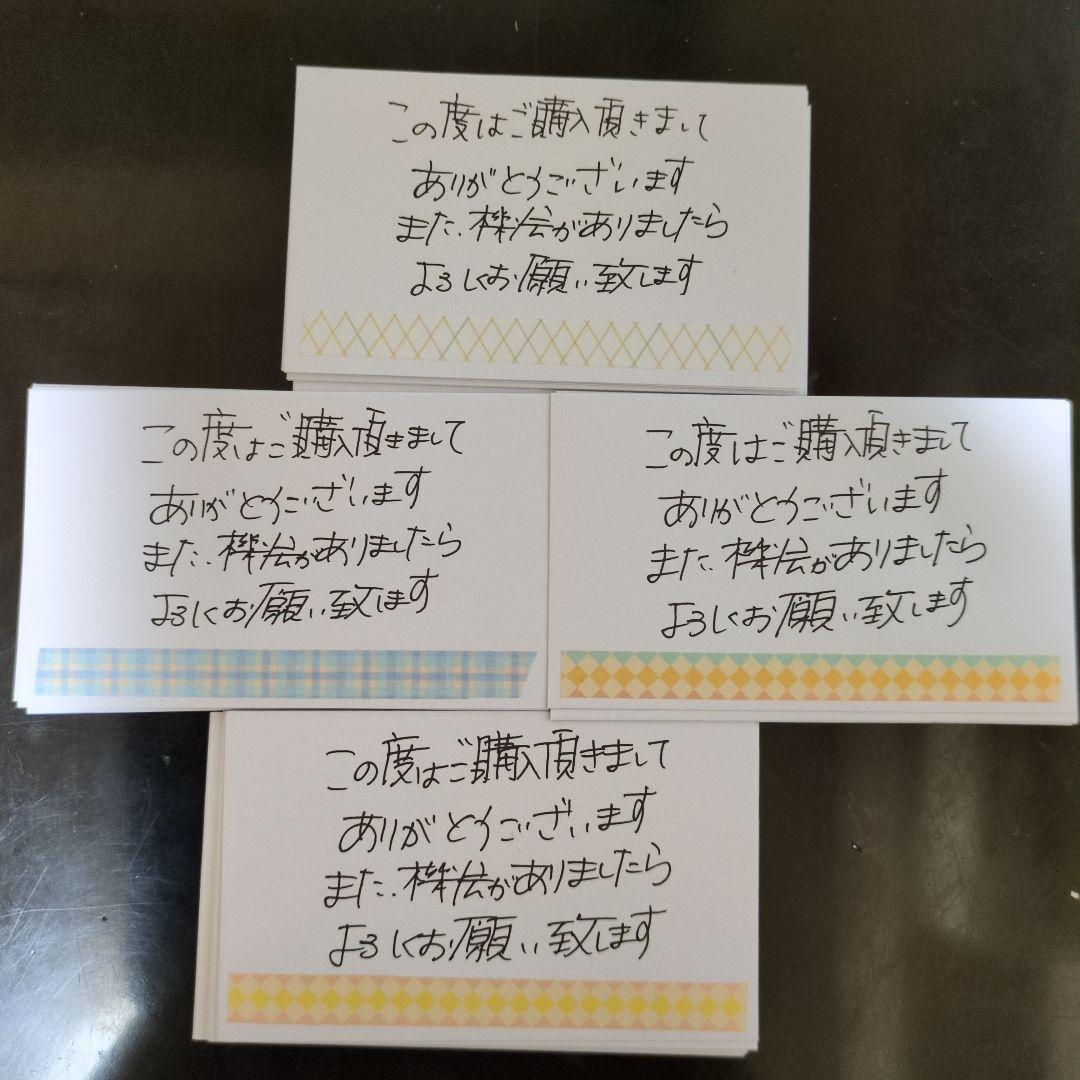 この度はご購入頂きまして
ありがとうございます
また、機会がありましたら
よろしくお願い致します
この度はご購入頂きまして
ありがとうございます
また、機会がありましたら
よろしくお願い致します
この度はご購入頂きまして
ありがとうございます
また、機会がありましたら
よろしくお願い致します
この度はご購入頂きまして
ありがとうございます
また、機会がありましたら
よろしくお願い致します